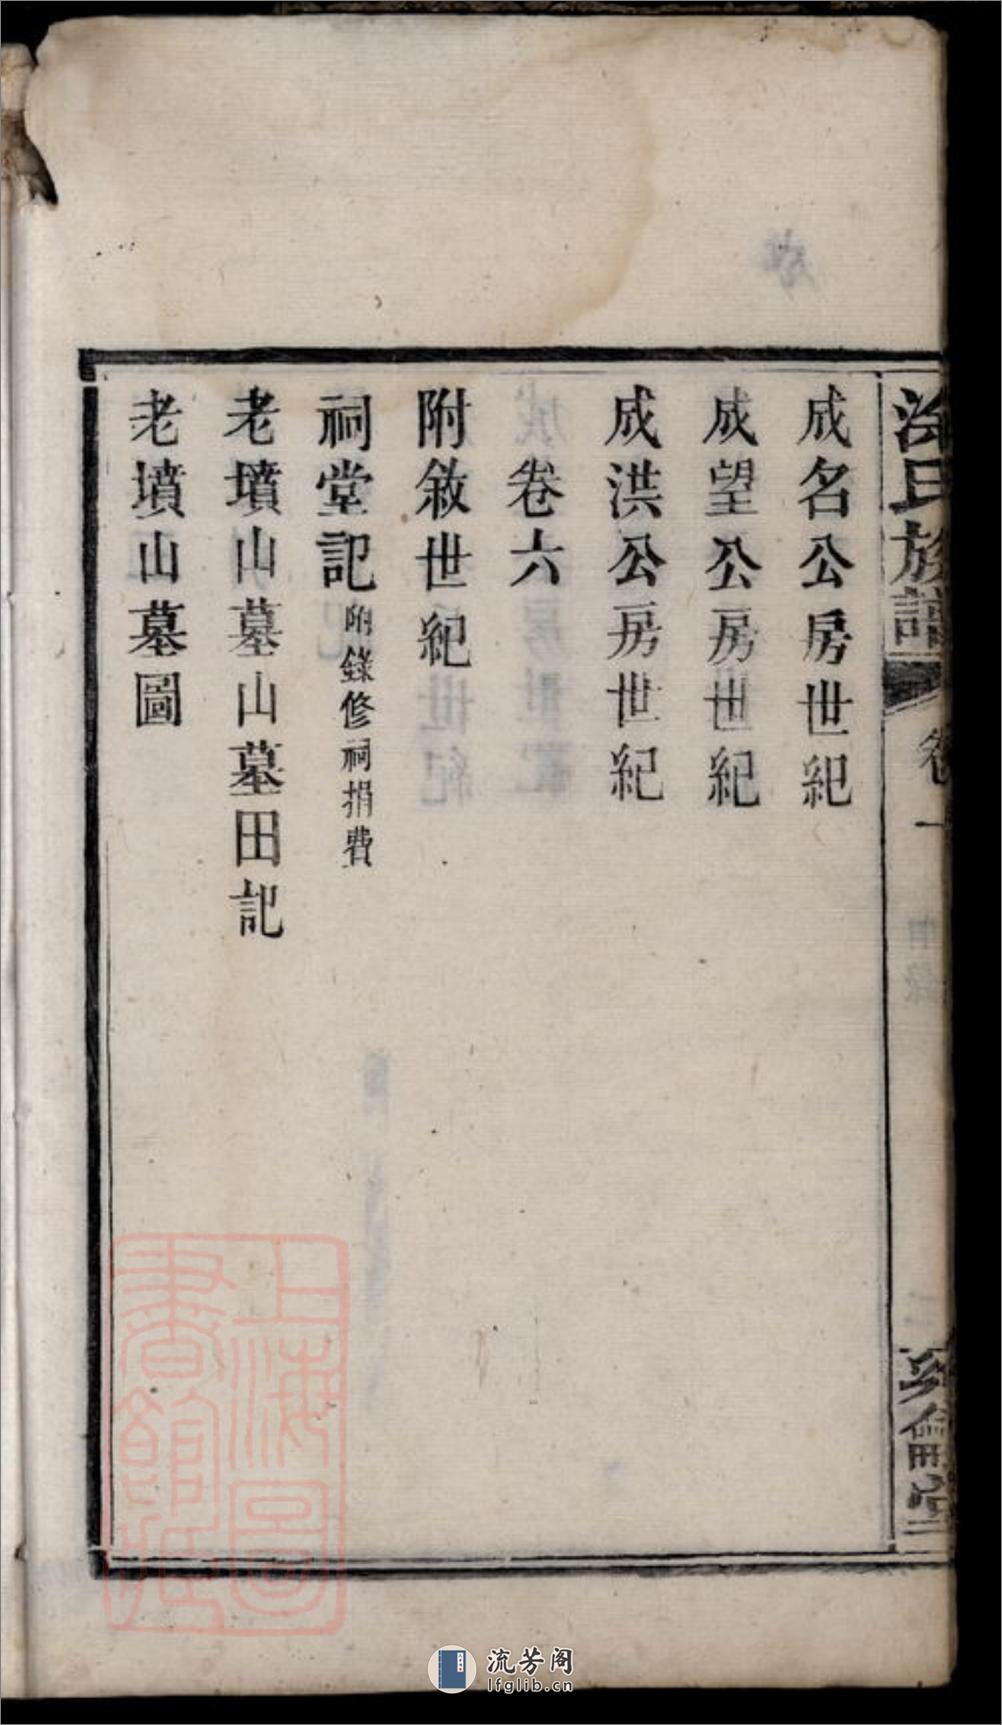 氏族譜
卷一
成名公房世紀
成望公房世紀
成洪公房世紀
卷六
附敘世紀
祠堂記附錄修祠捐費
老墳山墓山墓田記
老墳山墓圖
倫堂
上海圖書館藏
流芳阁
lfglib.cn